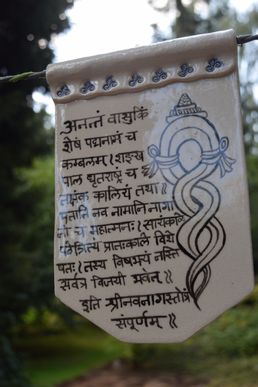 अनन्तं वासुकिं
शेषं पद्मनाभं च
कम्बलम्। शङ्ख
पालं धृतराष्ट्रं च
तक्षकं कालियं तथा॥
एतानि नव नामानि नागा
नां च महात्मनः। सायंकाले
पठेन्नित्यं प्रातःकाले विशे
षतः। तस्य विषभयं नास्ति
सर्वत्र विजयी भवेत्॥
इति श्रीनवनागस्तोत्रं
संपूर्णम्॥